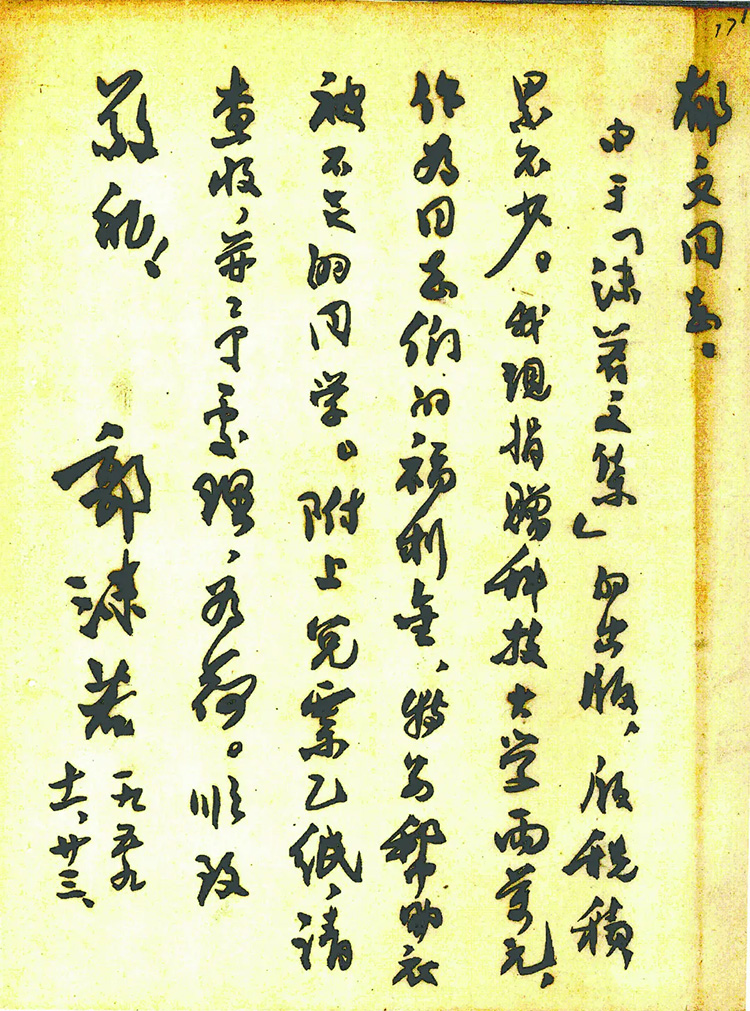 郁文同志：
由于「沫若文集」的出版，版税积
累不少。我现捐赠科技大学两萬元，
作为同志们的福利金、特别帮助衣
被不足的同学。附上兑票乙纸，请
查收，并予处理，为荷。顺致
敬礼！
郭沫若
一九五九
十一、廿三、